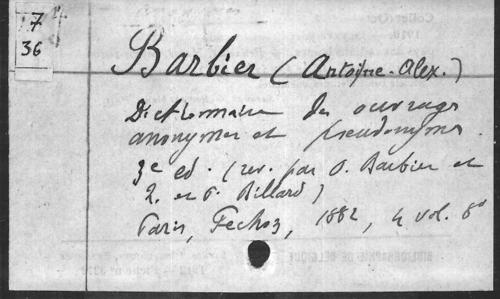 7
36
Barbier (Antoine-Alex.)
Dictionnaire des ouvrages
anonymes et pseudonymes.
3e ed. (rev. par O. Barbier et
et P. Billard)
Paris, Fechoz, 1882, 4 vol. 8°